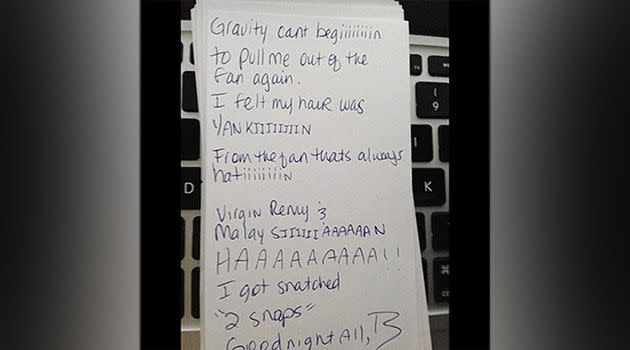 Gravity cant begiiiiiiiin
to pull me out of the
fan again.
I felt my hair was
YANKIIIIIIIN
From the fan thats always
hatiiiiiiiin
Virgin Remy &
Malay SIIIIII'AAAAAAN
HAAAAAAAAA!!
I got snatched
"2 snaps"
Goodnight All, B
( 9
D
K